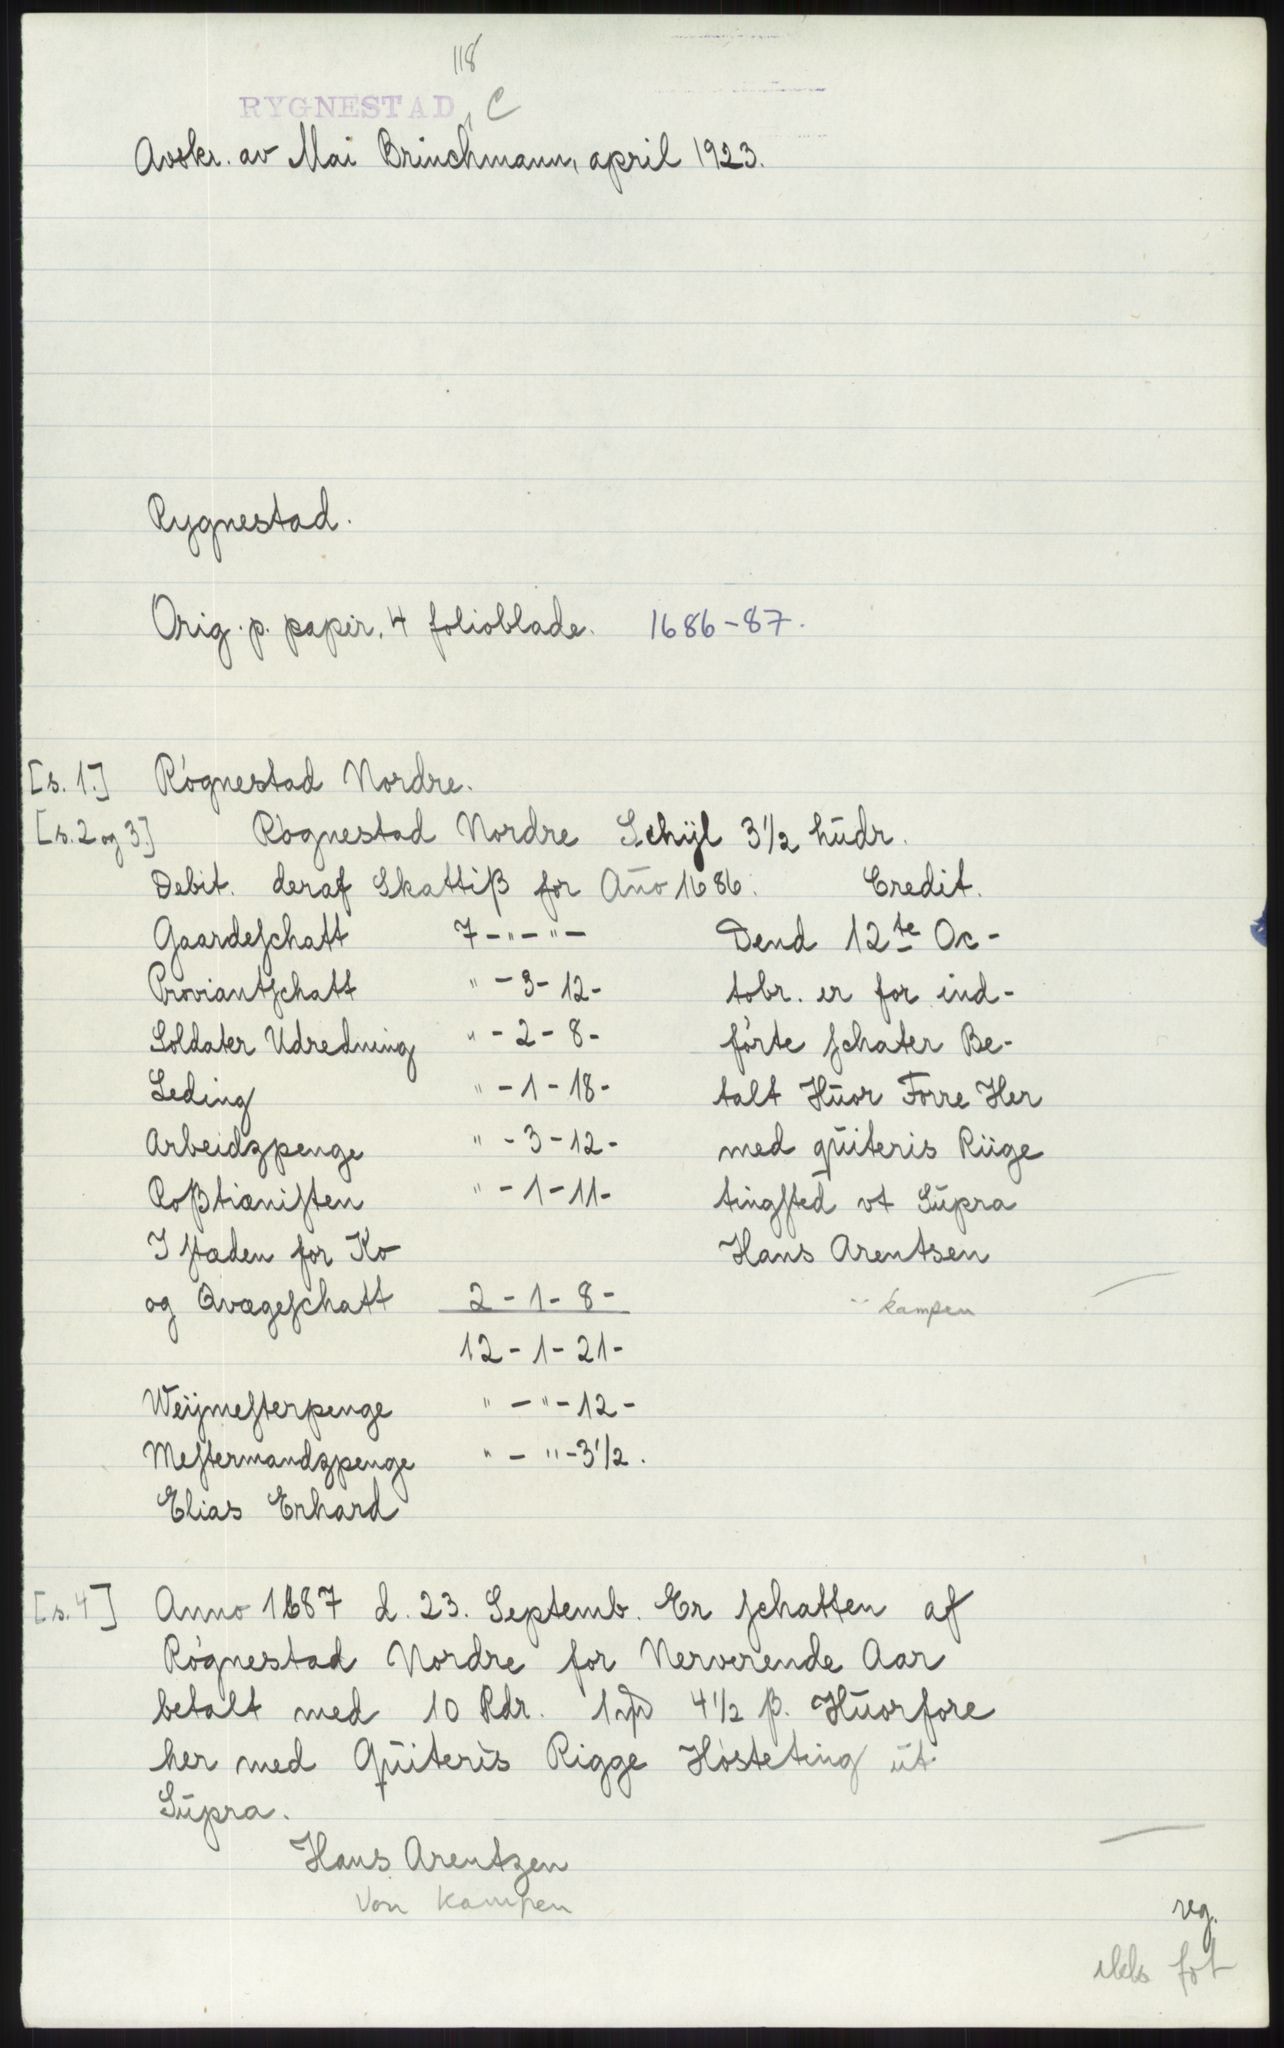 118
RYGNESTAD, C
Avskr. av Mai Brinchmann, april 1923.
Rygnestad.
Orig. p. papir, 4 folioblade. 1686-87.
[s. 1.] Røgnestad Nordre.
[s. 2 og 3.] Røgnestad Nordre Schÿl 3 1/2 hudr.
Debit. deraf Skattiß for Año 1686. Credit.
Gaardeſchatt 7 - " - " - Dend 12te Oc-
Proviantſchatt " - 3 - 12 - tobr. er for ind-
Soldater Udredning " - 2 - 8 - førte ſchater Be-
Leding " - 1 - 18 - talt Huor Forre Her
Arbeidzpenge " - 3 - 12 - med quiteris Riige
Roßtiæniſten " - 1 - 11 - tingſted vt Supra
I ſtæden for Ko Hans Arentsen
og Qvægeſchatt 2 - 1 - 8 - " kampen
12 - 1 - 21 -
Weijmeſterpenge " - " - 12 -
Meſtermandzpenge " - " - 3 1/2.
Elias Erhard
[s. 4] Anno 1687 d. 23. Septemb. Er ſchatten af
Røgnestad Nordre for Nerverende Aar
betalt med 10 Rdr. 1 4 1/2 ß. Huorfore
her med Quiteris Rigge Høsteting ut
Supra.
Hans Arentzen
Von Kampen
reg.
ikke fot